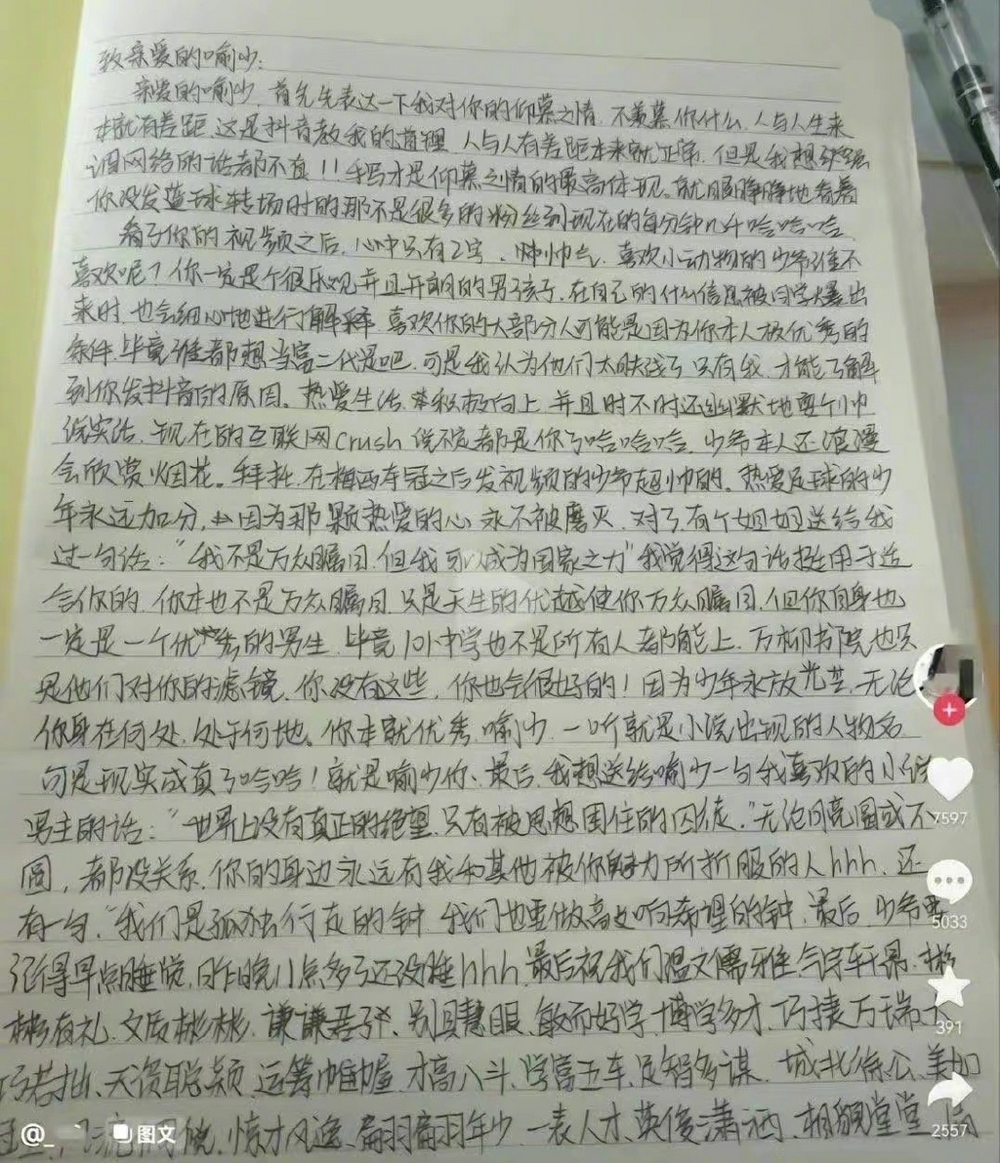 致亲爱的喻少:
亲爱的喻少,首先先表达一下我对你的仰慕之情,不羡慕你什么,人与人生来
本就有差距,这是抖音教我的道理,人与人有差距本来就正常,但是我想
谓网络的话都不值!!手写才是仰慕之情的最高体现。就眼睁睁地看着
你没发篮球转场时的那不是很多的粉丝到现在的每分钟几千哈哈哈。
看了你的视频之后,心中只有2字,帅气,喜欢小动物的少爷谁不
喜欢呢?你一定是个很乐观并且开朗的男孩子,在自己的什么信息被同学爆出
来时,也会细心地进行解释,喜欢你的大部分人可能是因为你本人极优秀的
条件,毕竟谁都想当富二代是吧,可是我认为他们太肤浅了,只有我,才能了解
到你发抖音的原因。热爱生活,积极向上,并且时不时还幽默地耍个小帅
说实话,现在的互联网crush说不定都是你了哈哈哈,少爷本人还浪漫
会欣赏烟花。拜托,在梅西夺冠之后发视频的少爷超帅的。热爱足球的少
年永远加分,因为那颗热爱的心永不被磨灭,对了,有个姐姐送给我
过一句话:“我不是万众瞩目,但我可以成为国家之力”我觉得这句话挺用于适
合你的,你本也不是万众瞩目,只是天生的优越使你万众瞩目,但你自身也
一定是一个优秀的男生,毕竟101中学也不是所有人都能上,万柳书院也只
是他们对你的滤镜,你没有这些,你也会很好的!因为少年永放光芒,无论
你身在何处,处于何地。你本就优秀,喻少,一听就是小说出现的人物名
可是现实成真了哈哈!就是喻少你、最后,我想送给喻少一句我喜欢的小说
男主的话:“世界上没有真正的绝望,只有被思想困住的囚徒。”无论月亮圆或不
圆,都没关系,你的身边永远有我和其他被你魅力所折服的人hhh,还
有一句,“我们是孤独行走的钟,我们也要做高处响希望的钟,最后,少爷要
记得早点睡觉,昨晚11点多了还没睡hhh,最后祝我们温文儒雅,气宇轩昂,彬
彬有礼、文质彬彬、谦谦君子、别具慧眼、敏而好学、博学多才、巧捷万端、大
巧若拙、天资聪颖、运筹帷幄、才高八斗、学富五车、足智多谋、城北徐公、美如
惊才风逸、翩翩年少、一表人才、英俊潇洒、相貌堂堂、
7597
5033
391
2557
@_
图文